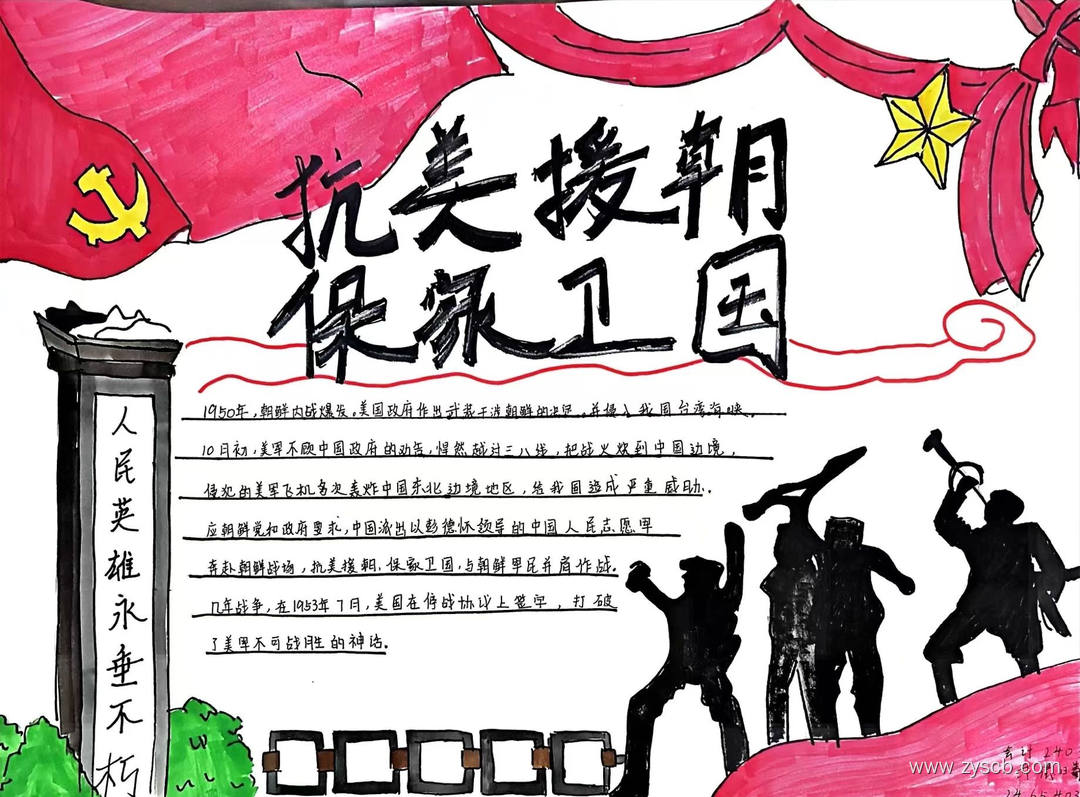 抗美援朝
保家卫国
人民英雄永垂不朽
1950年,朝鲜内战爆发。美国政府作出武装干涉朝鲜的决定。并侵入我国台湾海峡。
10月初,美军不顾中国政府的劝告,悍然越过三八线,把战火烧到中国边境,
侵犯的美军飞机多次轰炸中国东北边境地区,给我国造成严重威胁.
应朝鲜党和政府要求,中国派出以彭德怀领导的中国人民志愿军
奔赴朝鲜战场,抗美援朝、保家卫国,与朝鲜军民并肩作战.
几年战争,在1953年7月,美国在停战协议上签字,打破
了美军不可战胜的神话。
会计240
www.zyscb.com